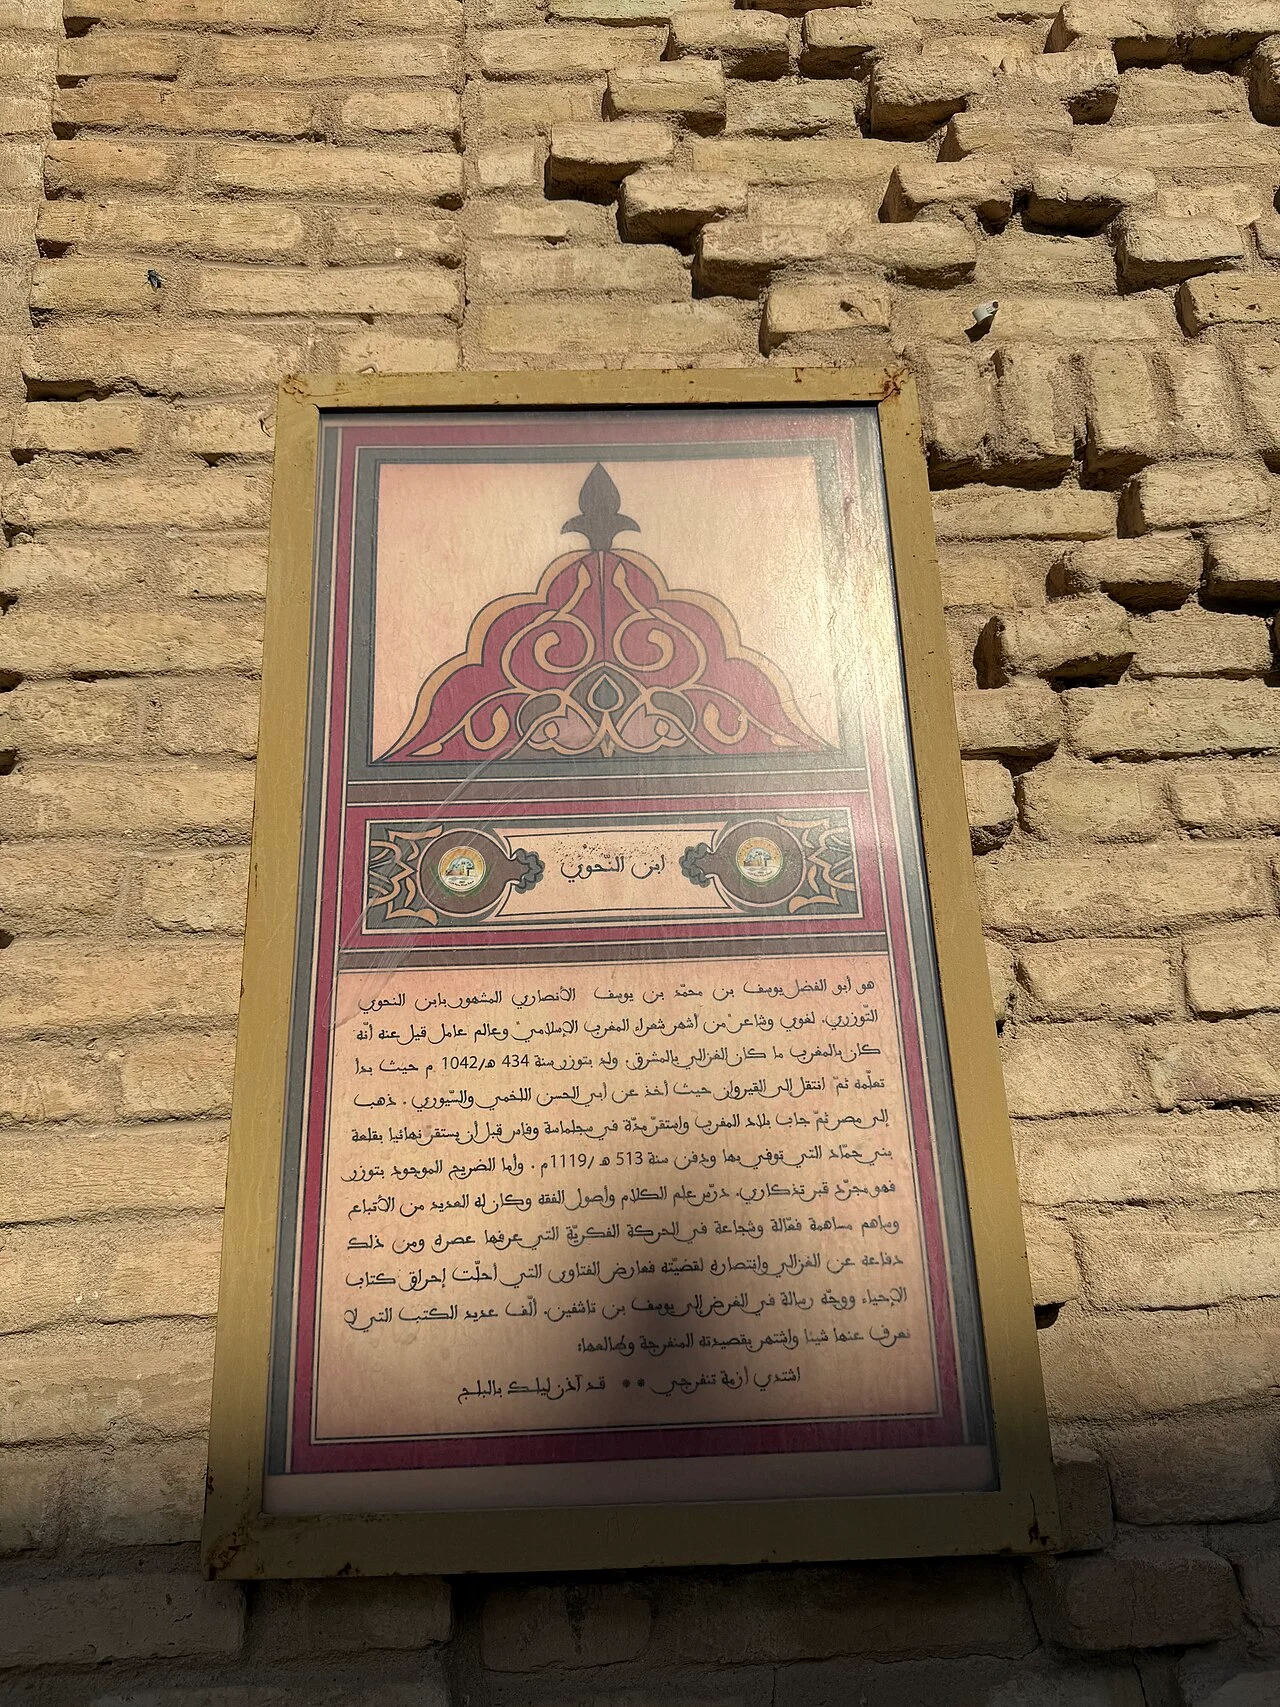 ابن النّحوي
هو أبو الفضل يوسف بن محمّد بن يوسف الأنصاري المشهور بابن النحوي
التّوزري. لغوي وشاعر "من أشهر شعراء المغرب الإسلامي" وعالم عامل قيل عنه أنّه
كان بالمغرب ما كان الغزالي بالمشرق. ولد بتوزر سنة 434 هـ/1042 م حيث بدأ
تعلّمه ثمّ انتقل إلى القيروان حيث أخذ عن أبي الحسن اللخمي والسّيوري. ذهب
إلى مصر ثمّ جاب بلاد المغرب واستقرّ مدّة في سجلماسة وفاس قبل أن يستقرّ نهائيا بقلعة
بني حمّاد التي توفي بها ودفن سنة 513 هـ/1119م. وأما الضريح الموجود بتوزر
فهو مجرّد قبر تذكاري. درّس علم الكلام وأصول الفقه وكان له العديد من الأتباع
وساهم مساهمة فعّالة وشجاعة في الحركة الفكريّة التي عرفها عصره ومن ذلك
دفاعه عن الغزالي وانتصاره لقضيّته فعارض الفتاوى التي أحلّت إحراق كتاب
الإحياء ووجّه رسالة في الغرض إلى يوسف بن تاشفين. ألّف عديد الكتب التي لا
نعرف عنها شيئا واشتهر بقصيدته المنفرجة وطالعها:
اشتدي أزمة تنفرجي ** قد آذن ليلك بالبلج